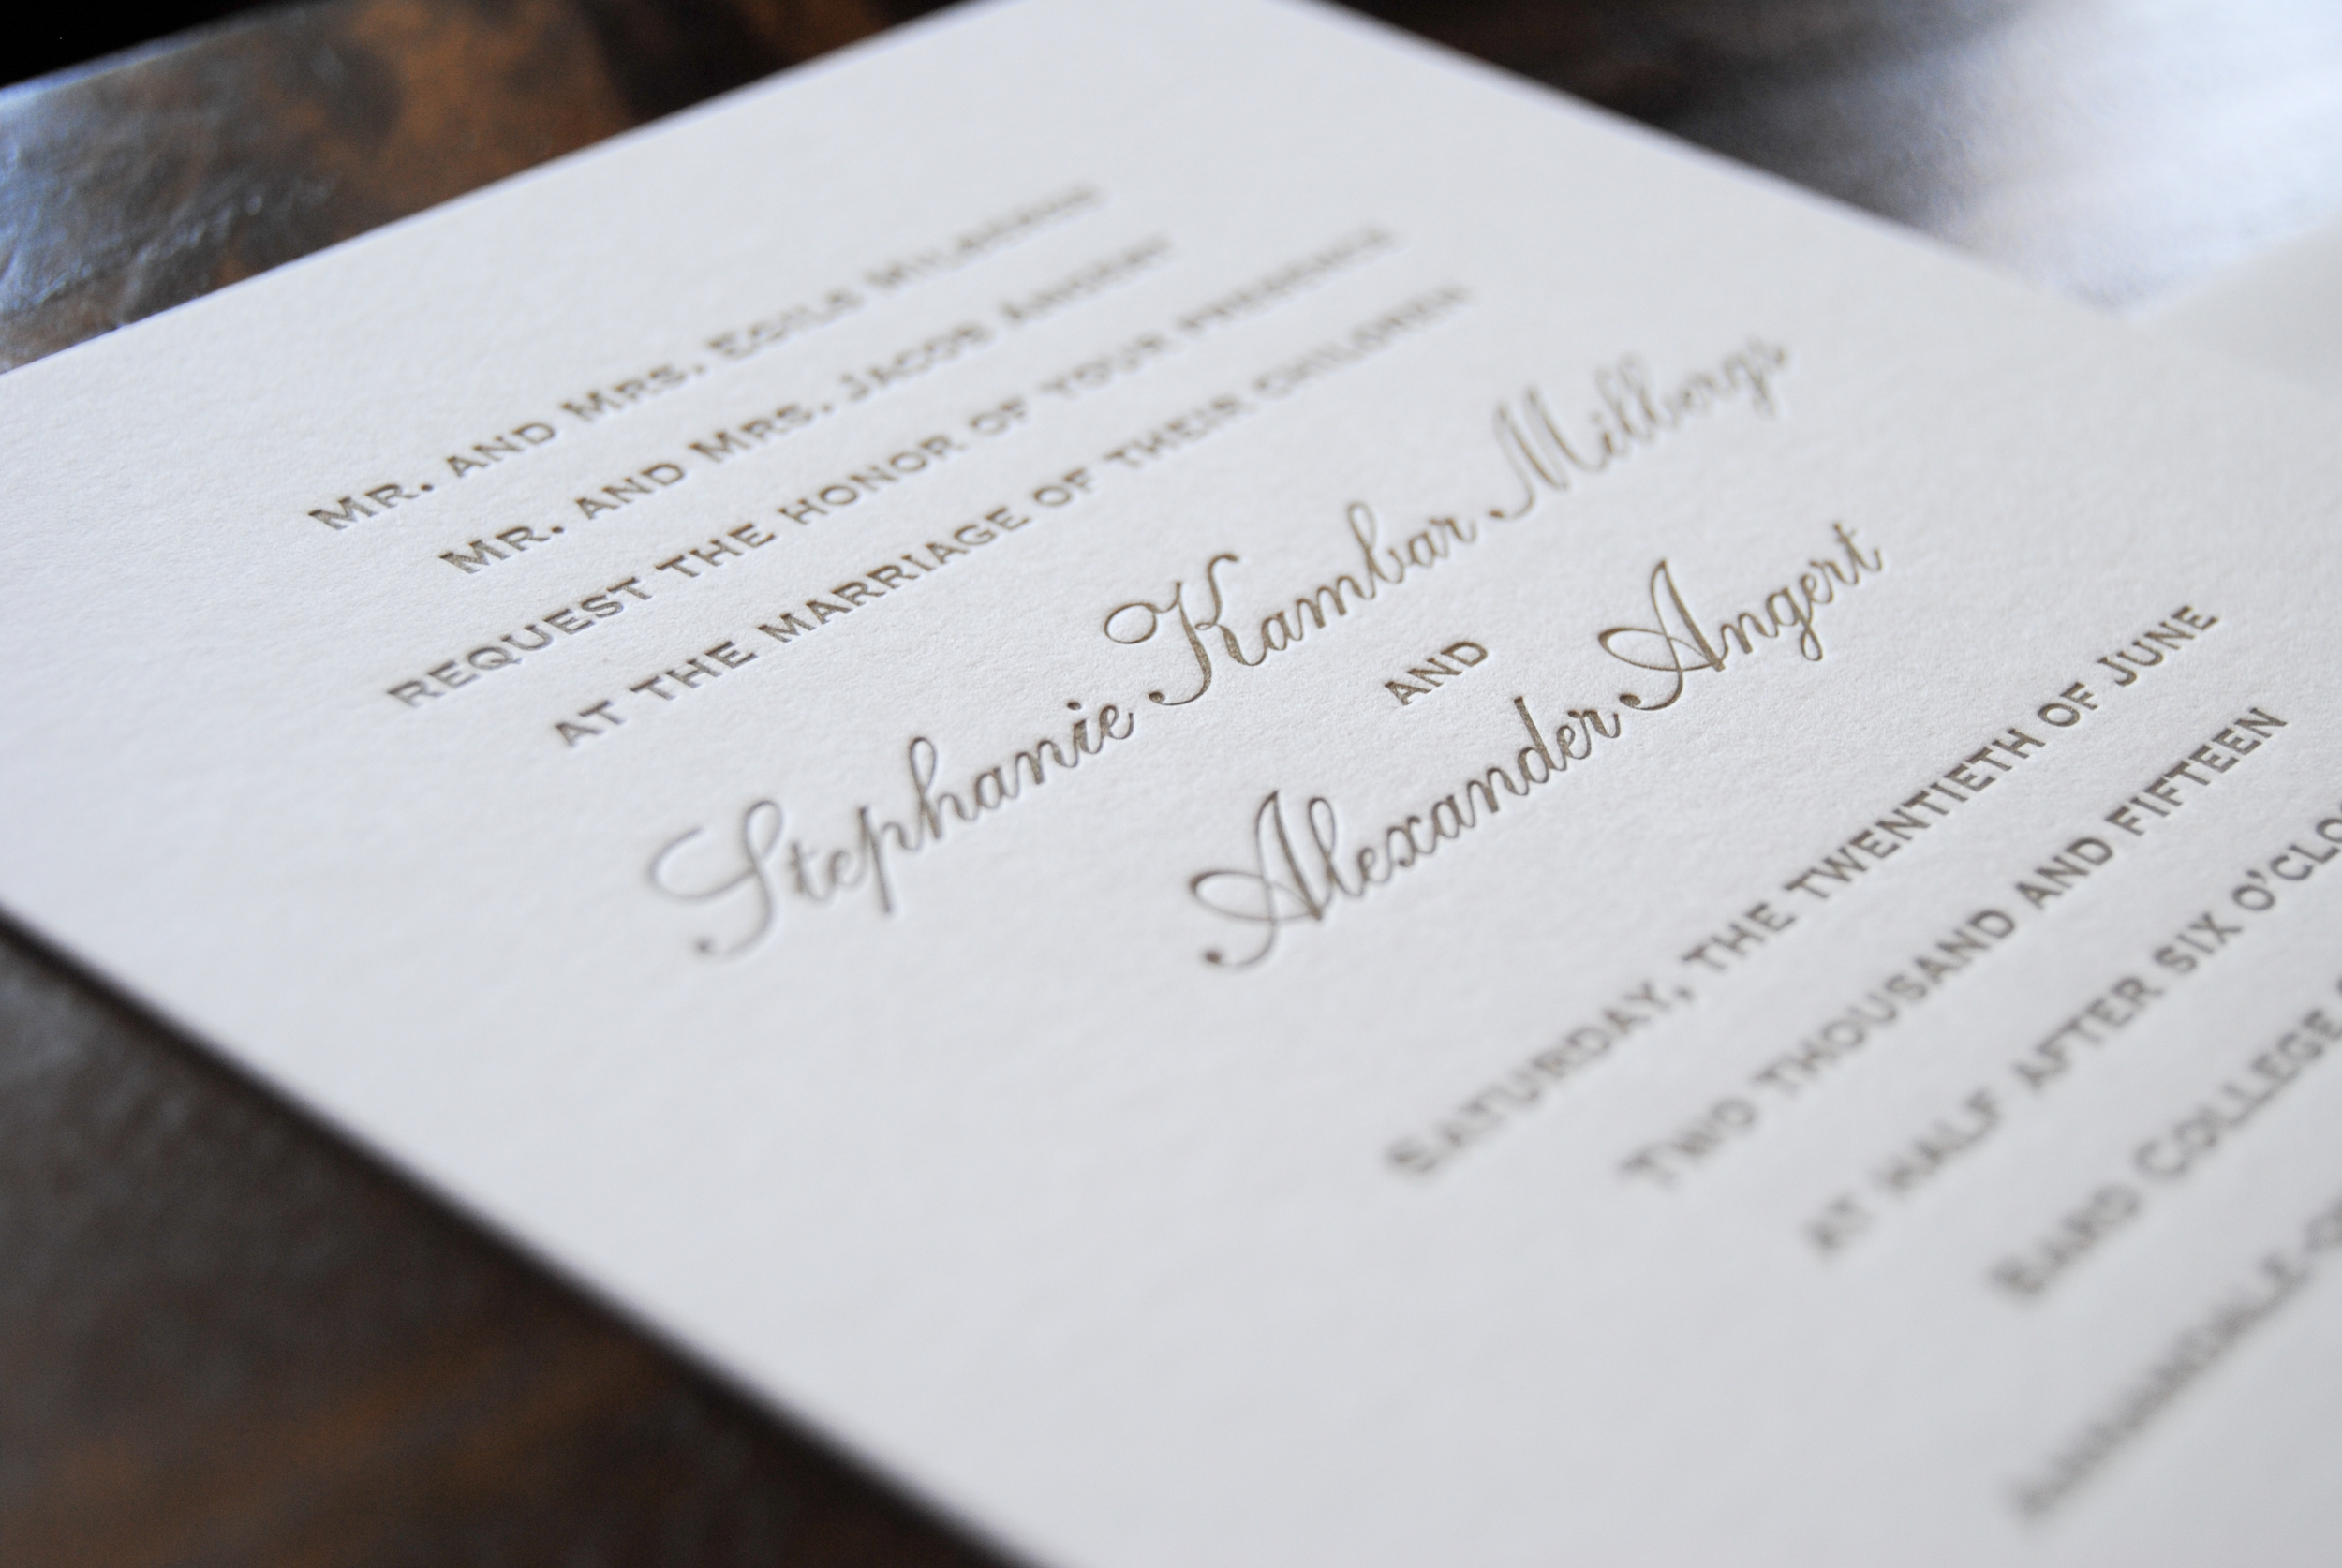 Mr. and Mrs. Egils Milbergs
Mr. and Mrs. Jacob Angert
request the honor of your presence
at the marriage of their children
Stephanie Kambar Milbergs
and
Alexander Angert
Saturday, the twentieth of June
Two thousand and fifteen
at half after six o'clo
Bard College
Annandale-o